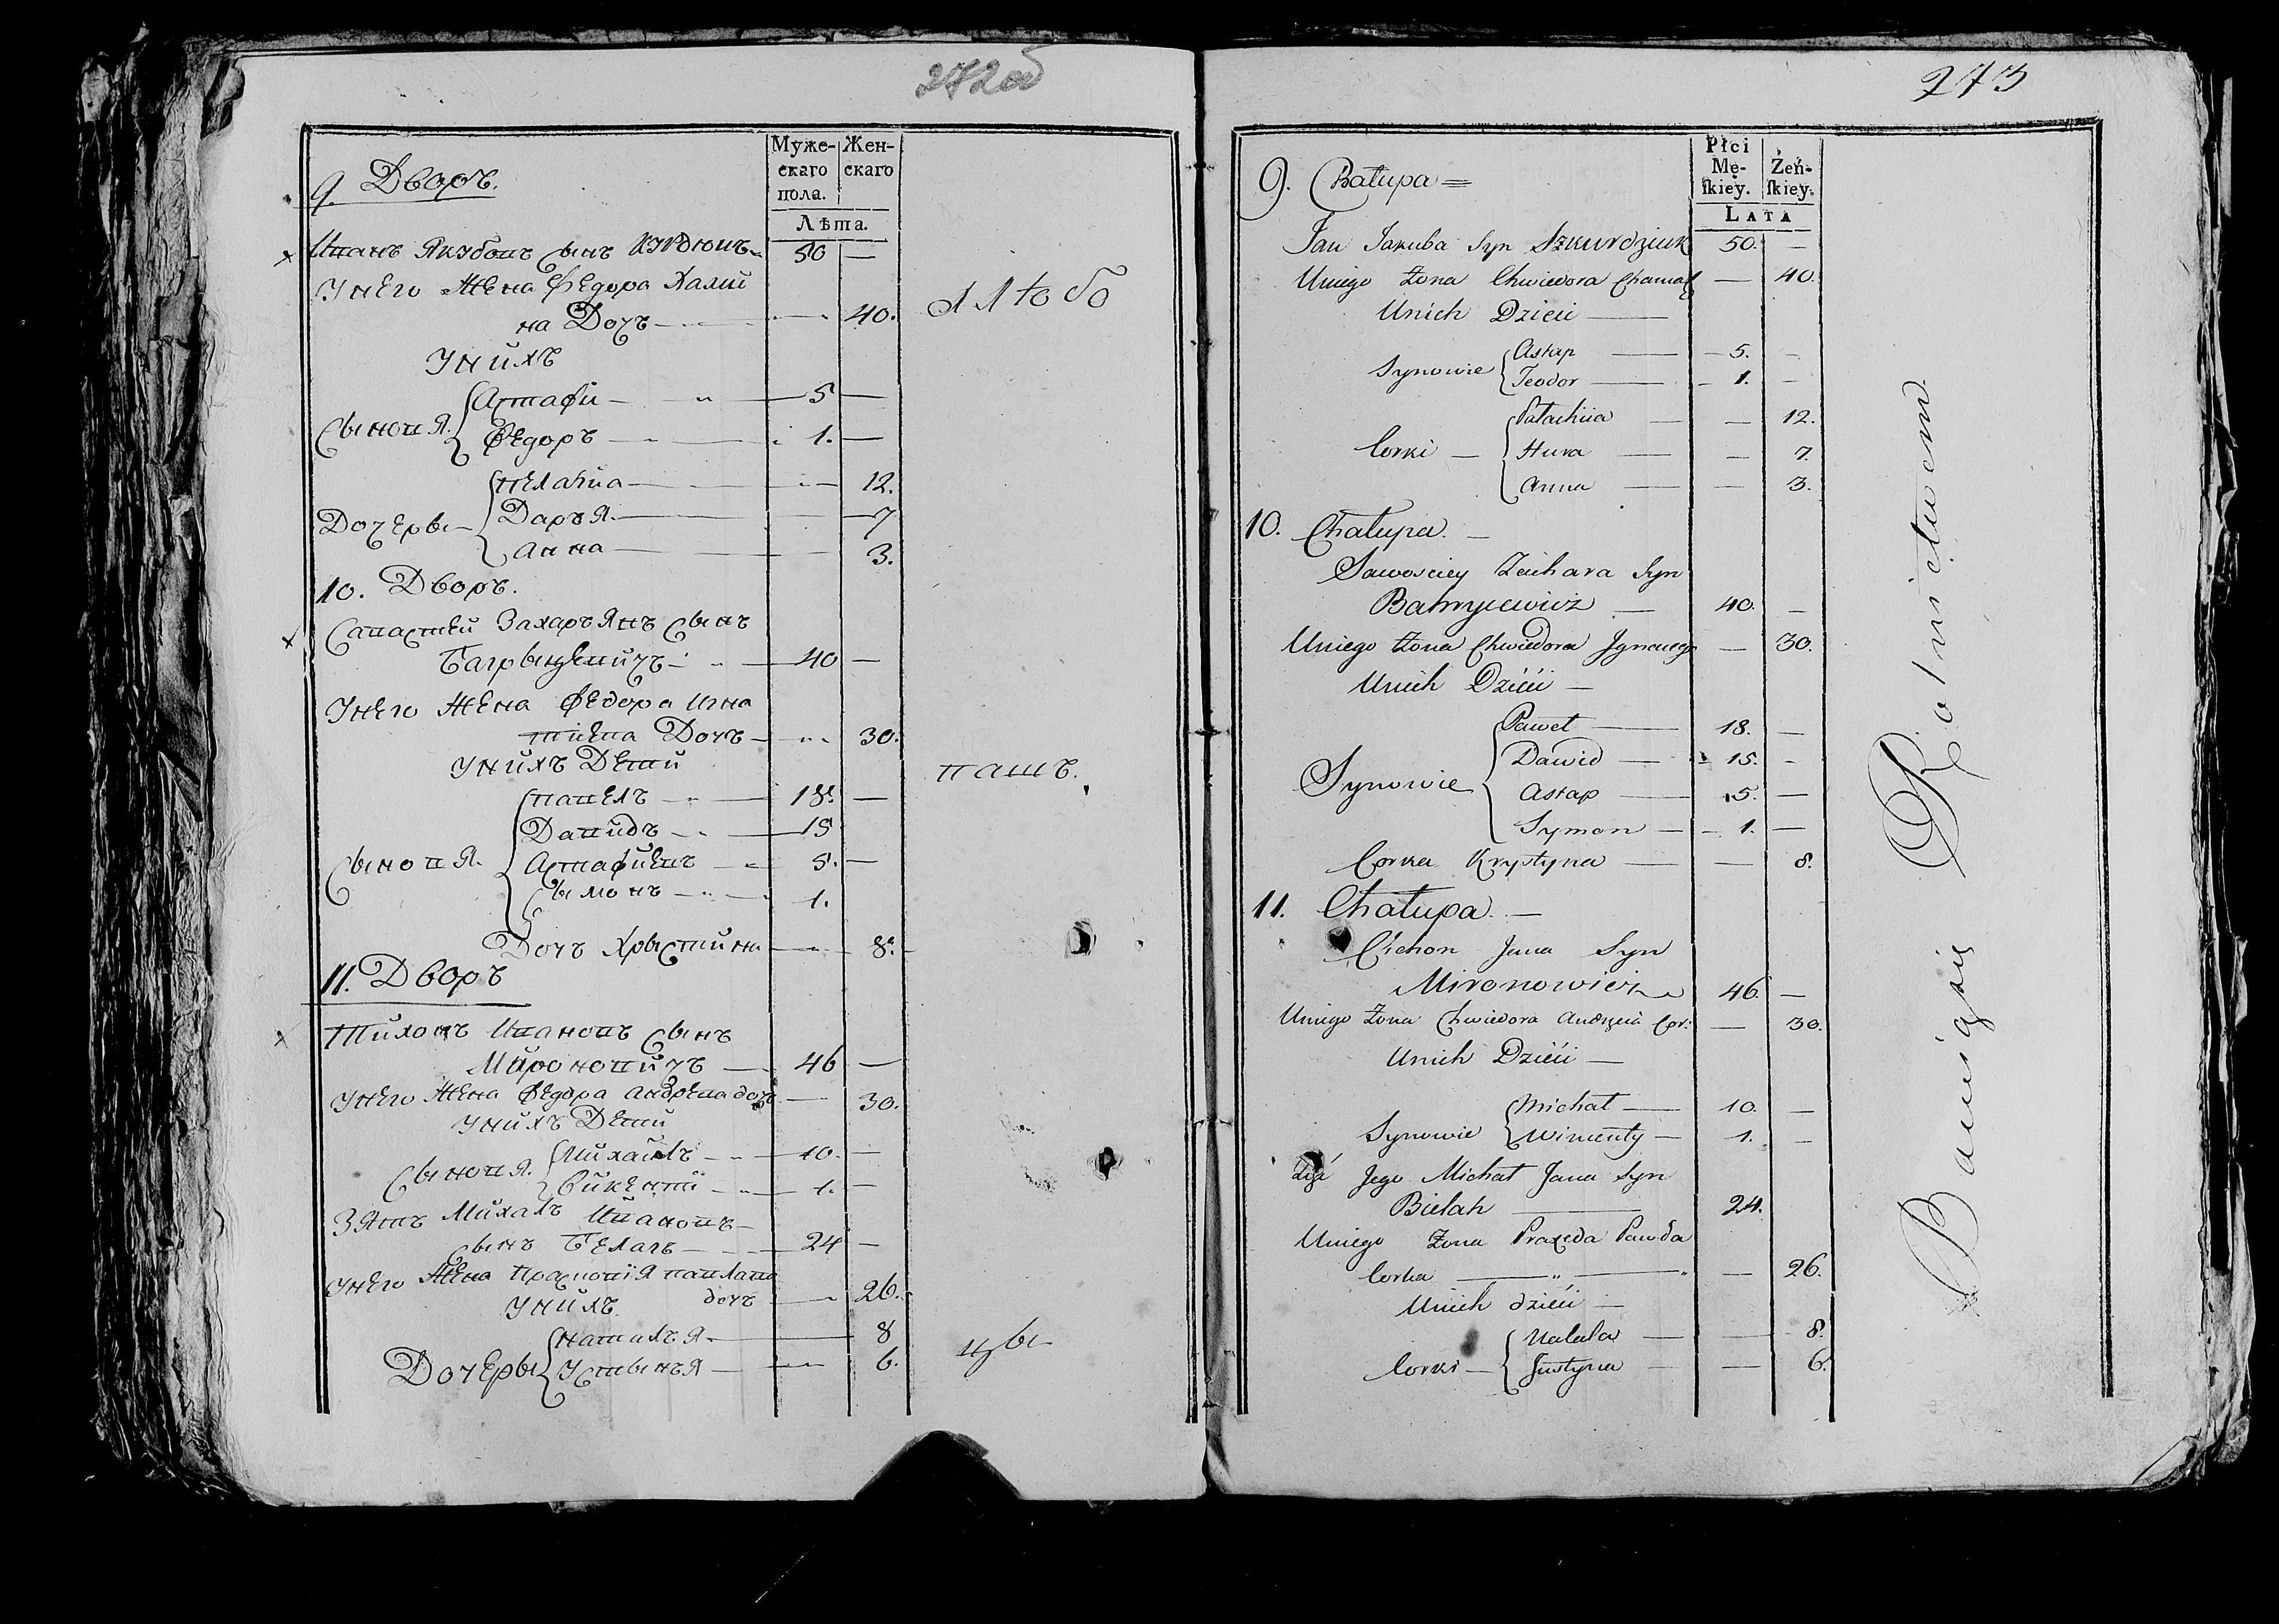 272об
Муже-
скаго
пола.
Жен-
скаго
Лѣта.
9. Дворъ.
Иванъ Якубовъ сынъ 50 —
У него жена Федора Халии
на Дочъ — 40.
У нихъ
Сыновя. Астафи — 5 —
Федоръ — 1. —
Дочеры — Пелагиа — 12.
Даръя. — 7
Анна — 3.
10. Дворъ.
Савастей Захаръянъ сынъ
40 —
У него жена Федора Игна
тиева Дочъ — 30.
У нихъ Дети
Сыновя. Павелъ — 18. —
Давидъ — 15
Астафиевъ — 5. —
Сымонъ — 1.
Дочъ Христина — 8.
11. Дворъ
Тихонъ Ивановъ сынъ
Мироновичъ — 46 —
У него жена Федора Андреева дочъ — 30.
У нихъ Дети
Сыновя. Михайлъ — 10. —
Викенти — 1. —
Зять Михалъ Ивановъ
сынъ Белагъ — 24 —
У него жена Прасковія Павлава
дочъ — 26.
У нихъ
Дочеры Наталъя. — 8
Устынъя — 6.
Хлѣбо
паш.
цы
273
Płci
Mę-
ſkiey.
Żeń-
ſkiey.
LATA
9. Chałupa =
Jan Jakuba Syn Szkurdziuk 50. —
Uniego Żona Chwiedora — 40.
Unich Dzieci —
Synowie Astap — 5. —
Teodor — 1. —
Corki — Pałachiia — 12.
Hura — 7.
Anna — 3.
10. Chałupa. —
Sawosciey Zachara Syn
Bahrycewicz — 40. —
Uniego Żona Chwiedora Jgnacego — 30.
Unich Dzieci —
Synowie Paweł — 18. —
Dawid — 15. —
Astap — 5. —
Symon — 1. —
Corka Krystyna — 8.
11. Chałupa. —
Cichon Jana Syn
Mironowicz 46. —
Uniego Żona Chwiedora Andrzeia Cor: — 30.
Unich Dzieci —
Synowie Michał — 10. —
Wincenty — 1. —
Zięć Jego Michał Jana Syn
Bielah — 24.
Uniego Żona Praxeda Pawła
Corka — 26.
Unich dzieci —
Corki — Natala — 8.
Justyna — 6.
Bawiąsię Rolnictwem